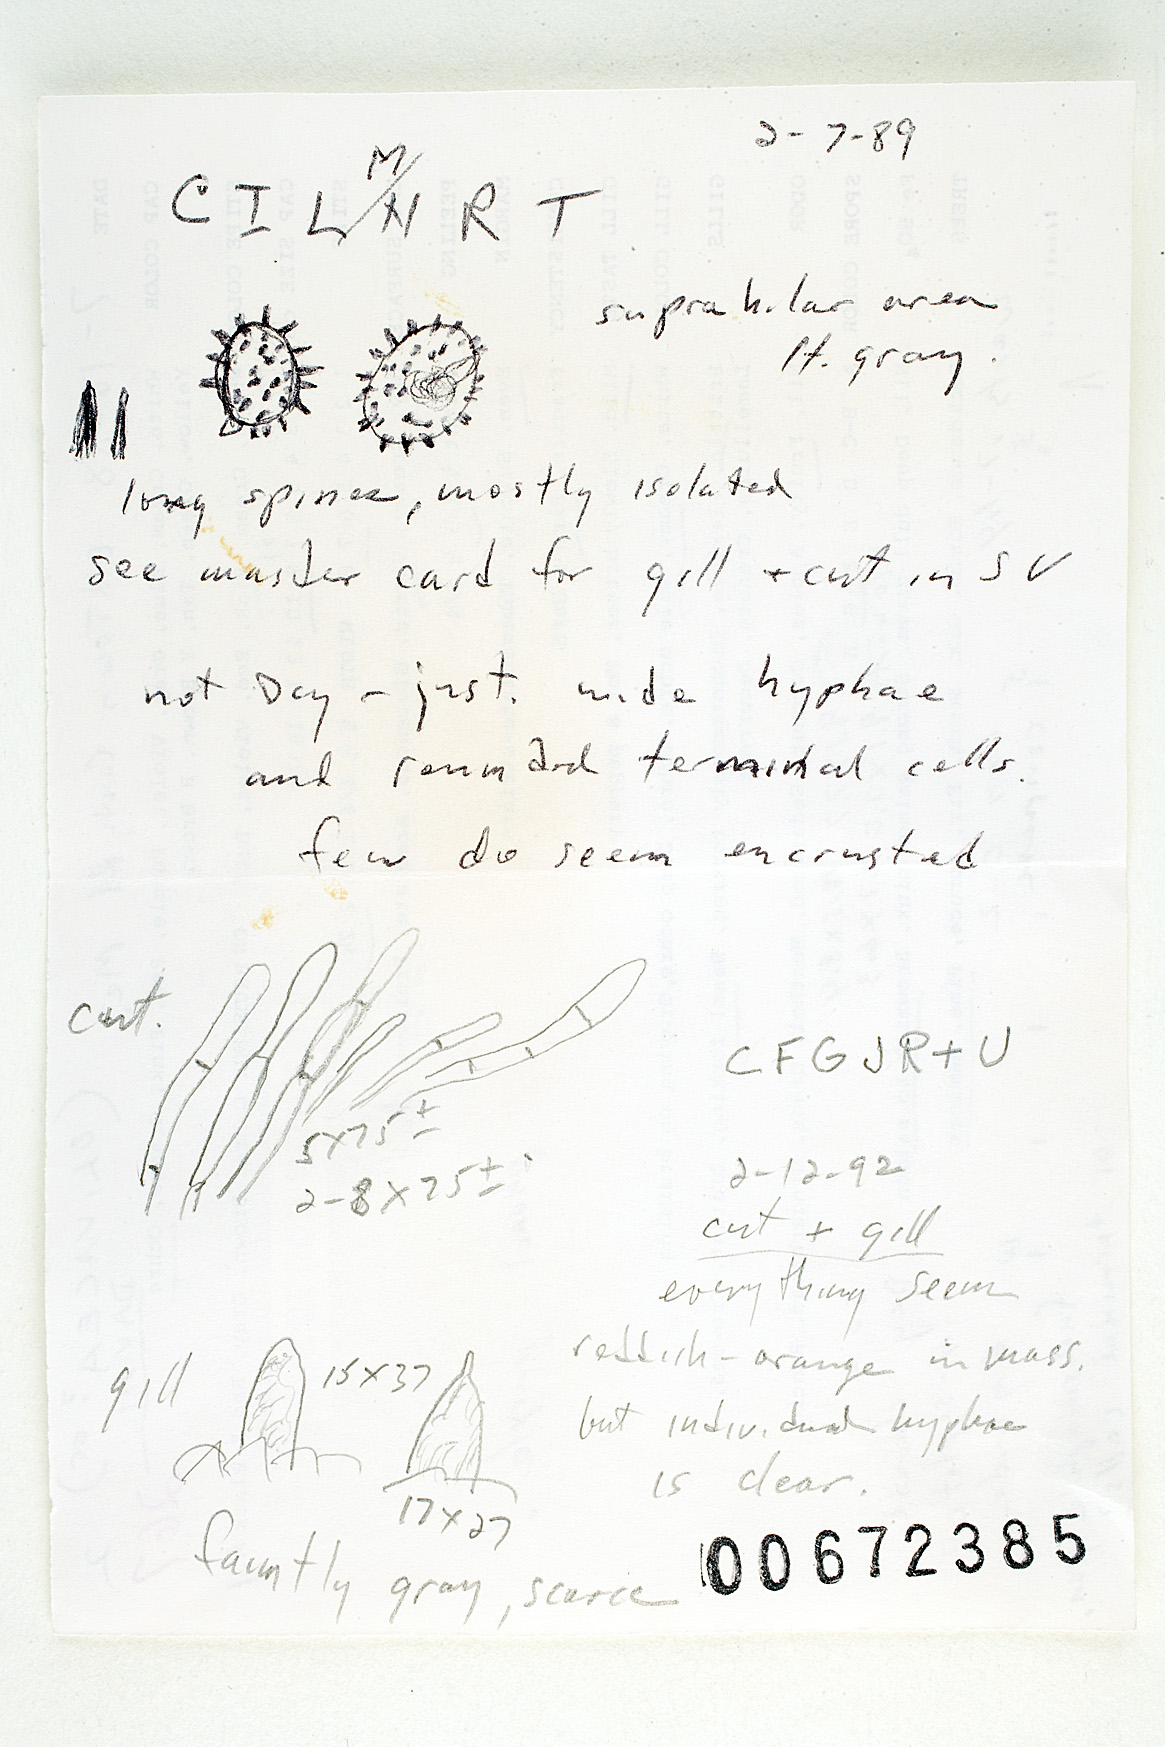 2-7-89
M/
CILNRT
suprahilar area
lt. gray.
long spines, mostly isolated
see master card for gill + cut in SV
not Day - just. wide hyphae
and rounded terminal cells.
few do seem encrusted
cut.
CFGJR+U
5x75±
2-8x75±
2-12-92
cut + gill
everything seem
reddish-orange in mass.
but individual hyphae
is clear.
gill
15x37
17x27
fauntly gray, scarce
00672385